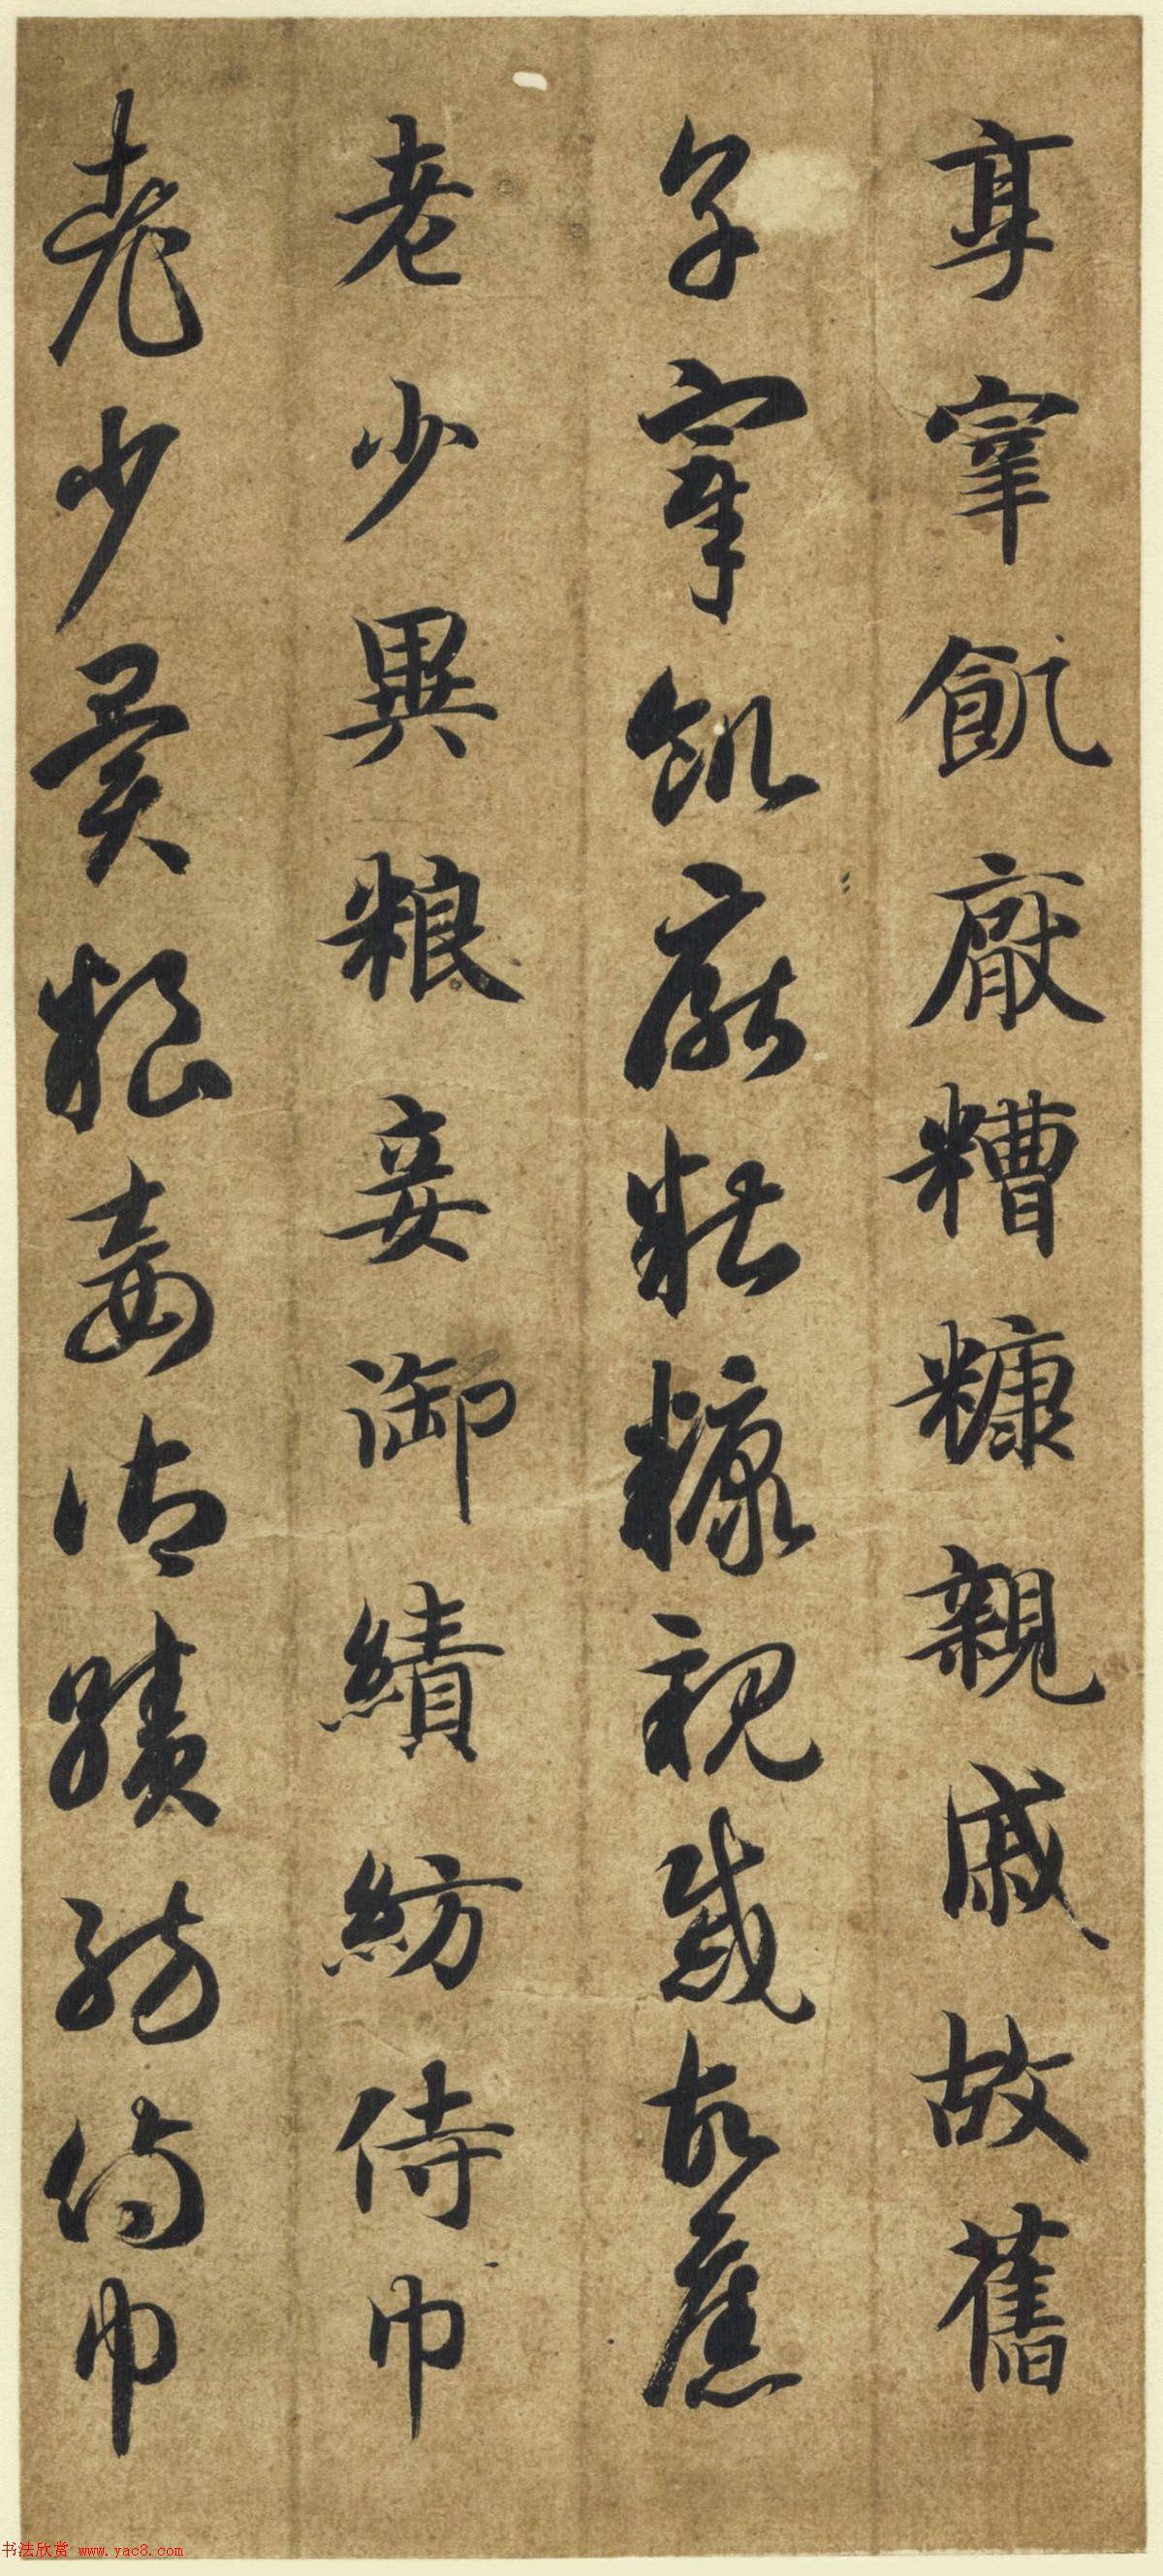 享宰飢厭糟糠親戚故舊
享宰飢厭糟糠親戚故舊
老少異粮妾御績紡侍巾
老少異粮妾御績紡侍巾
书法欣赏 www.yac8.com